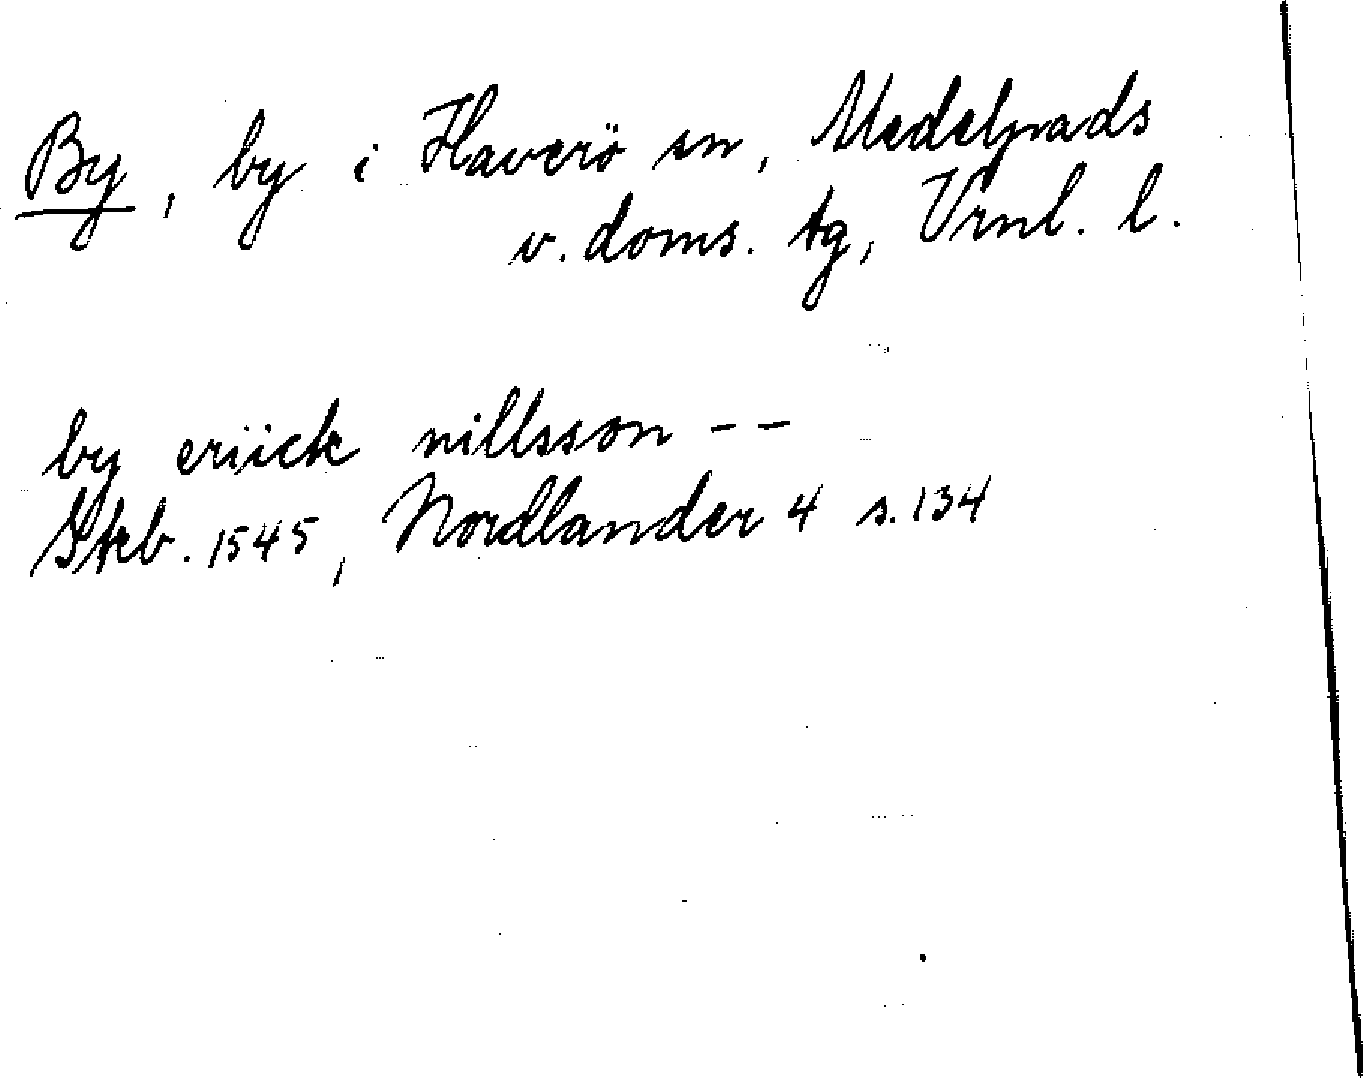 By, by i Haverö sn, Medelpads
v. doms. tg, Vrnl. l.
by eriick nillsson --
Skb. 1545, Nordlander 4 s. 134